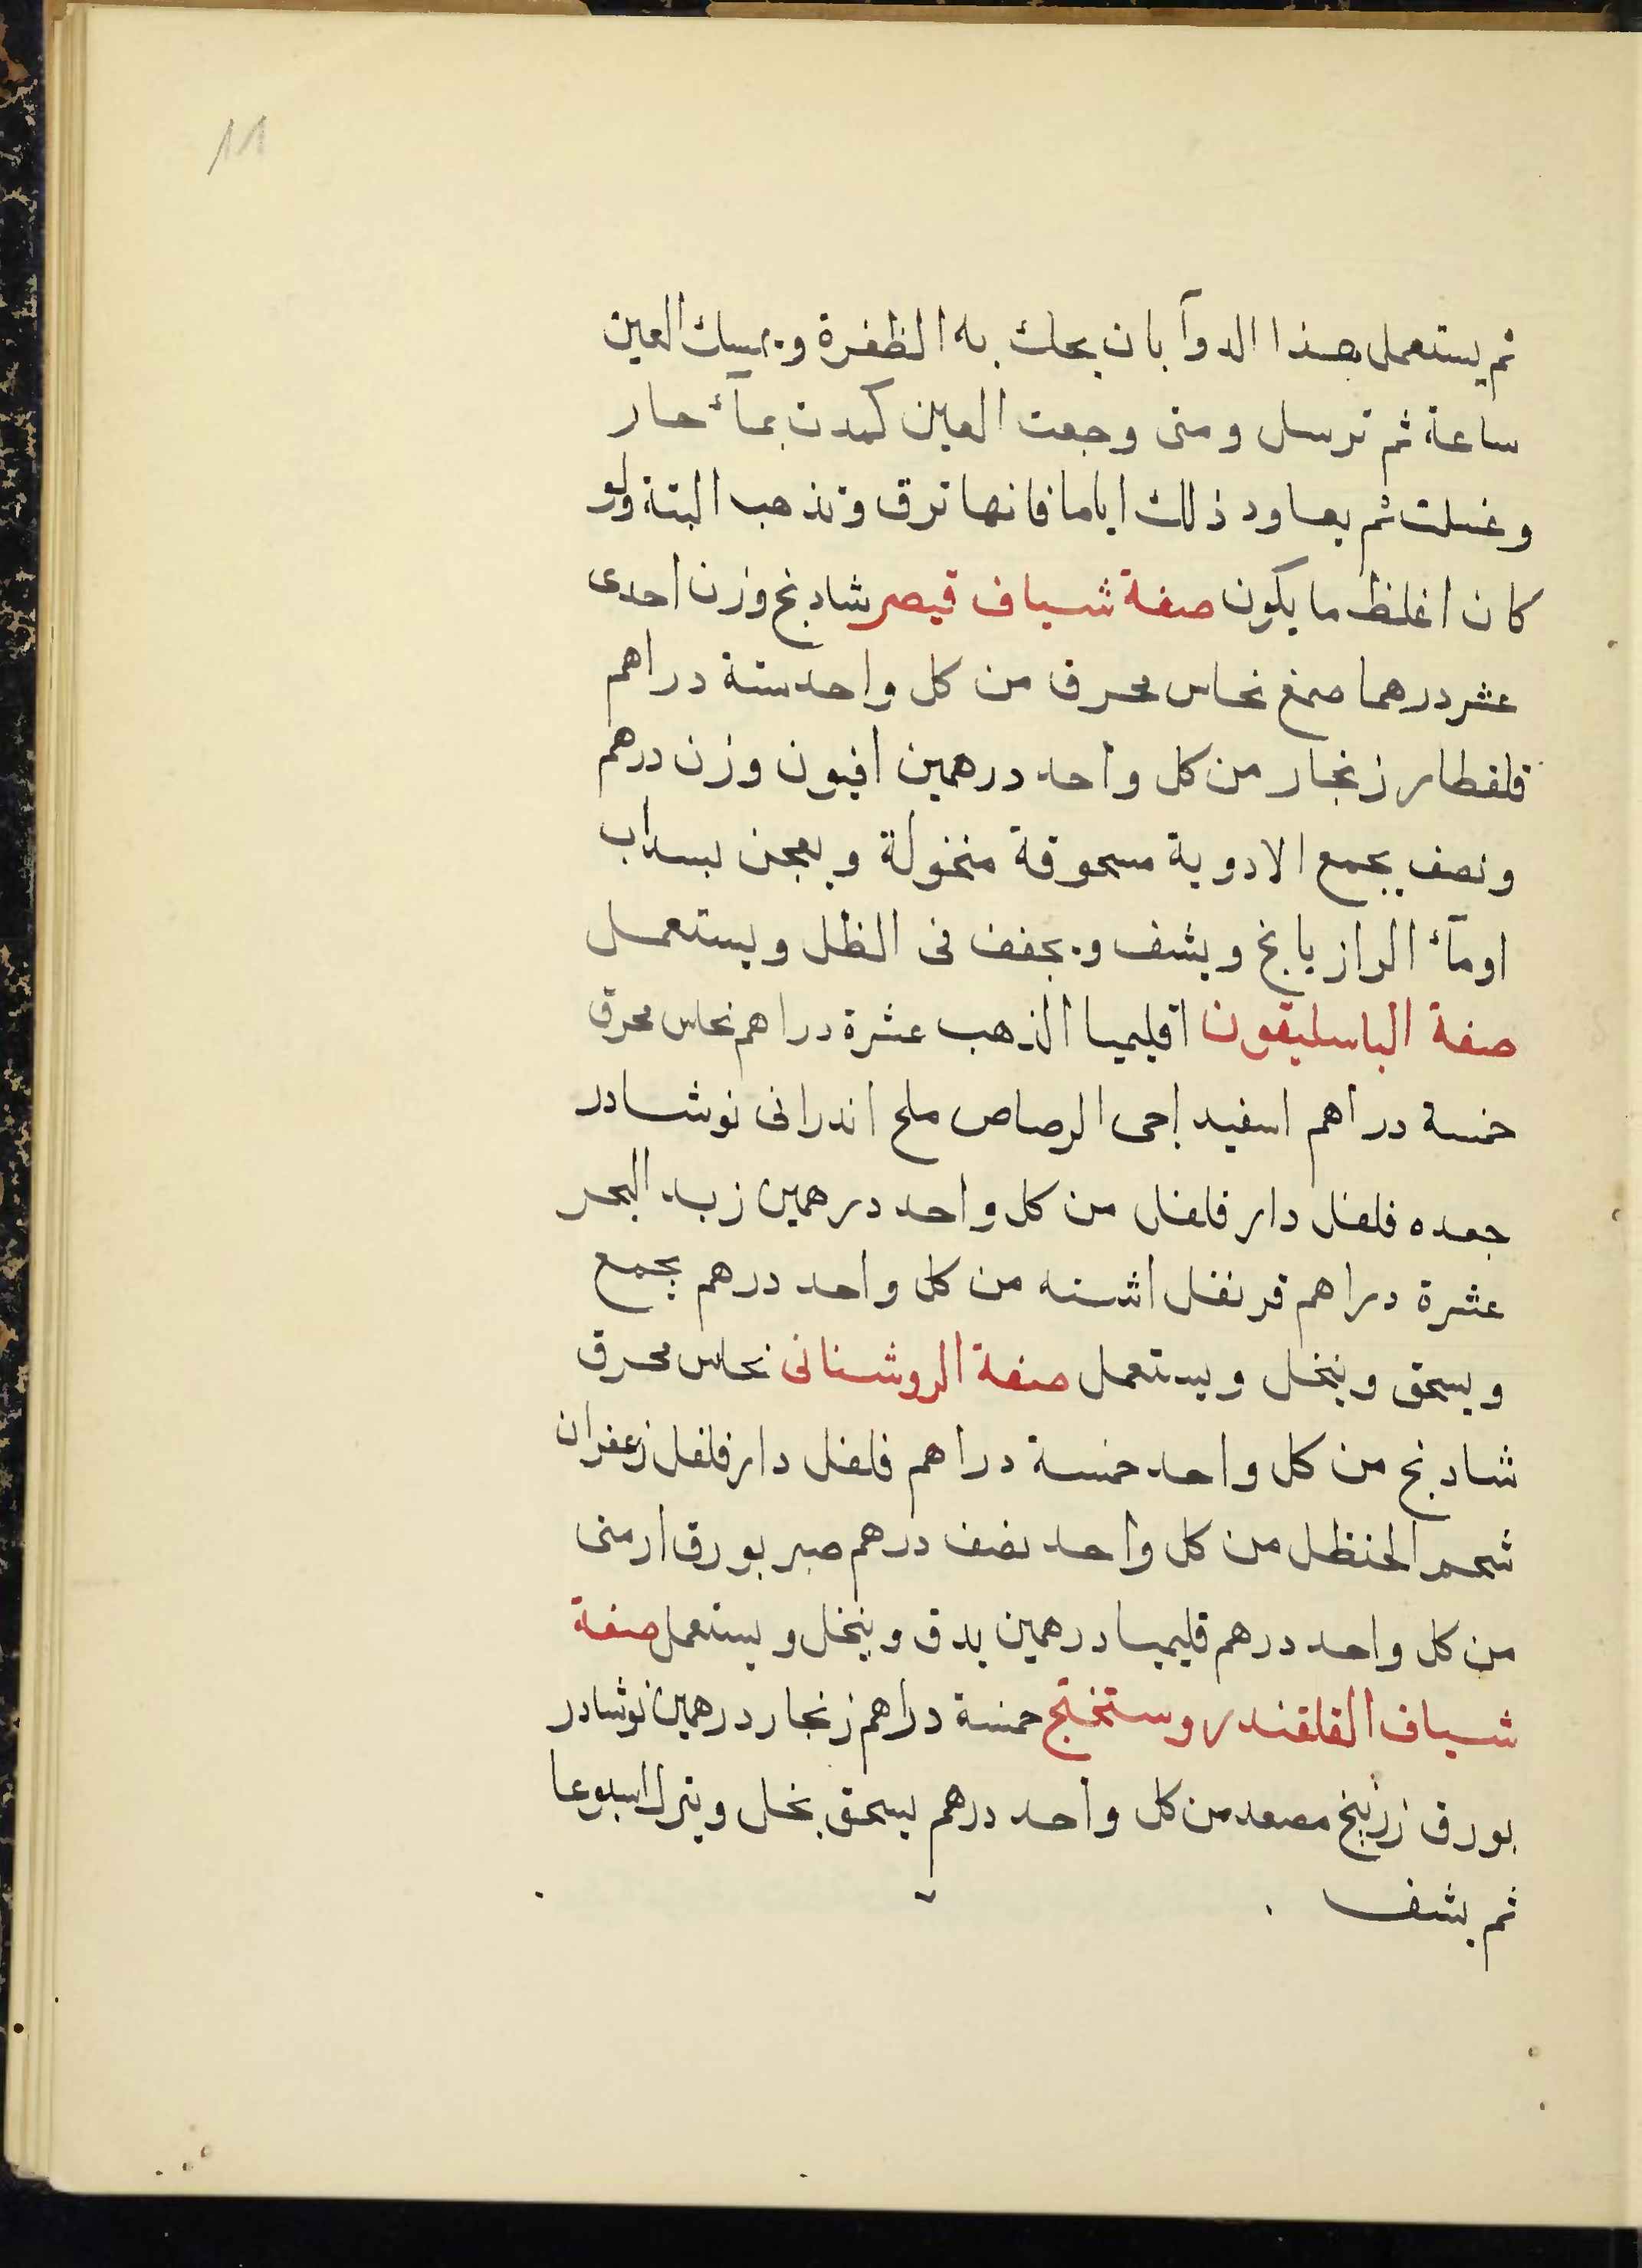 11
ثم يستعمل هذا الدوآ بان يحك به الظفرة ويمسك العين
ساعة ثم ترسل ومتى وجعت العين كمدت بمآء حار
وغسلت ثم يعاود ذلك اياما فانها ترق وتذهب البتة ولو
كان اغلظ ما يكون صفة شياف قيصر شادنج وزن احدى
عشر درهما صمغ نحاس محرق من كل واحد ستة دراهم
قلقطار زنجار من كل واحد درهمين افيون وزن درهم
ونصف يجمع الادوية مسحوقة منخولة ويعجن بسداب
اومآء الرازيانج ويشف ويجفف فى الظل ويستعمل
صفة الباسليقون اقليميا الذهب عشرة دراهم نحاس محرق
خمسة دراهم اسفيداجى الرصاص ملح اندرانى نوشادر
جعده فلفل دار فلفل من كل واحد درهمين زبد البحر
عشرة دراهم قرنفل اشنه من كل واحد درهم يجمع
ويسحق وينخل ويستعمل صفة الروشنانى نحاس محرق
شادنج من كل واحد خمسة دراهم فلفل دار فلفل زعفران
شحم الحنظل من كل واحد نصف درهم صبر بورق ارمنى
من كل واحد درهم قليميا درهمين يدق وينخل ويستعمل صفة
شياف القلقندر وستختج خمسة دراهم زنجار درهمين نوشادر
بورق زرنيخ مصعد من كل واحد درهم يسحق بخل ويترك اسبوعا
ثم يشف